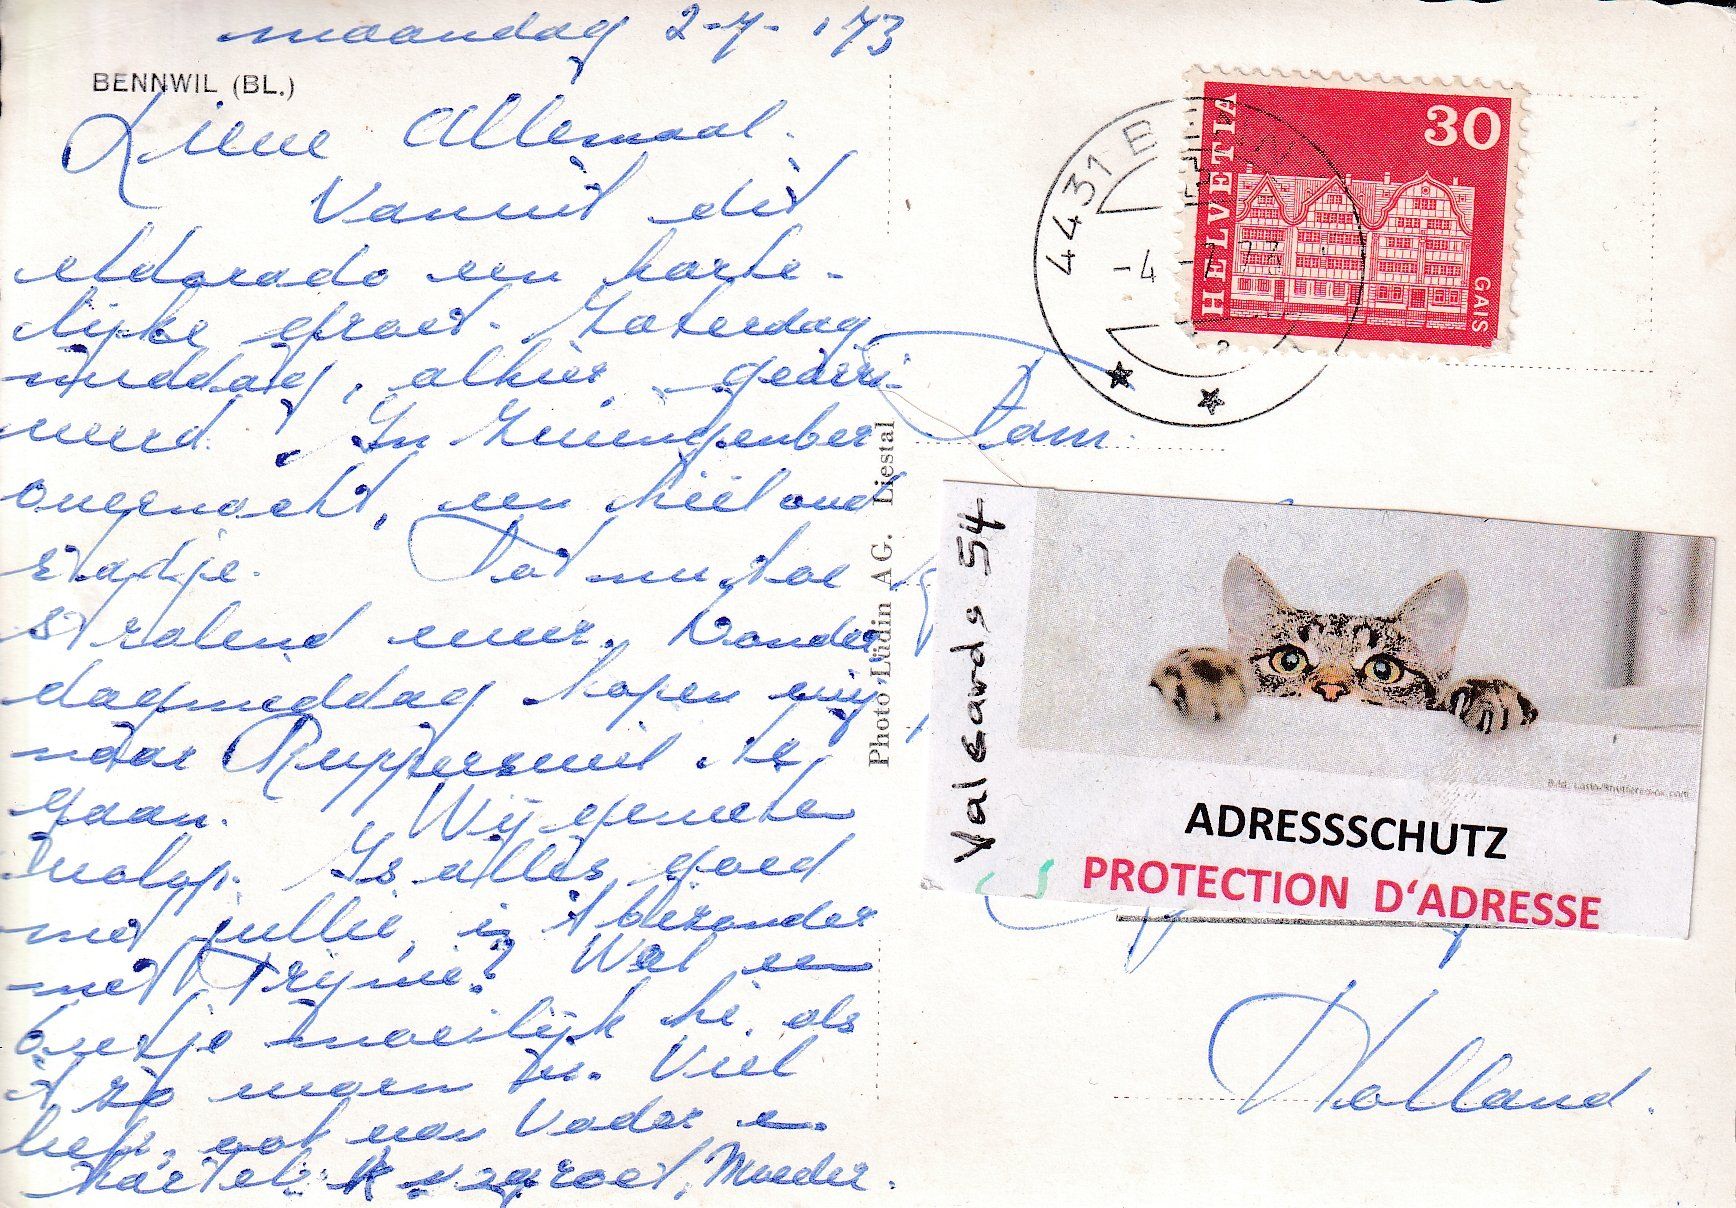 maandag 2-7-'73
BENNWIL (BL.)
Lieve Allemaal.
Vanuit dit
eldorado een harte-
lijke groet. Zaterdag
middag, alhier gearri-
veerd. In Zwingenberg
overnacht, een heel oud
stadje. Tot nu toe
stralend weer. Donder
dagmiddag hopen wij
naar Rupperswil te
gaan. Wij genieten
volop. Is alles goed
met jullie, in 't bizonder
met Trynie? Wel een
beetje moeilijk hè, als
't zo warm is. Veel
liefs, ook van Vader en
hartelijk gegroet, Moeder.
Photo Lüdin AG. Liestal
4431 BENNWIL
-4.-7.73
HELVETIA
30
GAIS
Fam.
Valcards 54
ADRESSSCHUTZ
PROTECTION D'ADRESSE
Holland.